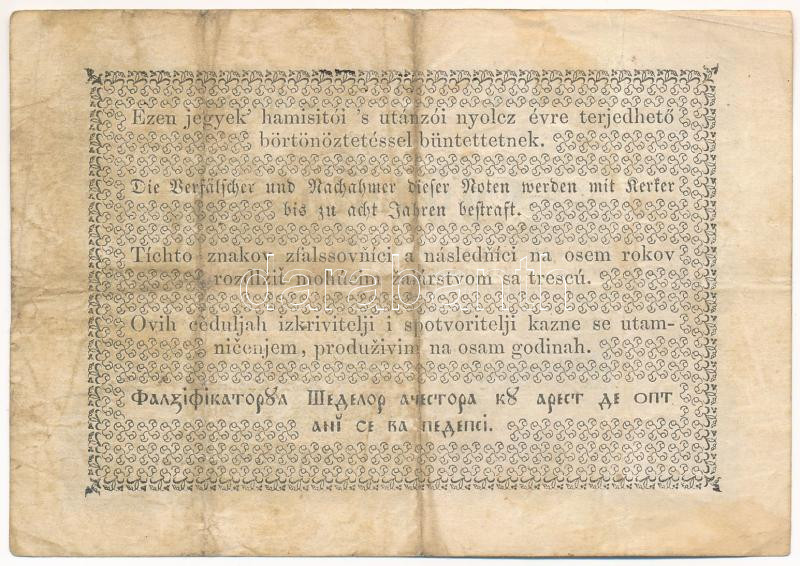 Ezen jegyek’ hamisitói ’s utánzói nyolcz évre terjedhető
börtönöztetéssel büntettetnek.
Die Verfälscher und Nachahmer dieser Noten werden mit Kerker
bis zu acht Jahren bestraft.
Tíchto znakov zfalssovňíci a následňíci na osem rokov
rozťížiť mohúcim žalárstvom sa trescú.
Ovih ceduljah izkrivitelji i spotvoritelji kazne se utam-
ničenjem, produživim na osam godinah.
Фалꙋіфікаторꙋл Шеделор ачестора кꙋ арест де опт
анї се ва педепсі.
darabanth